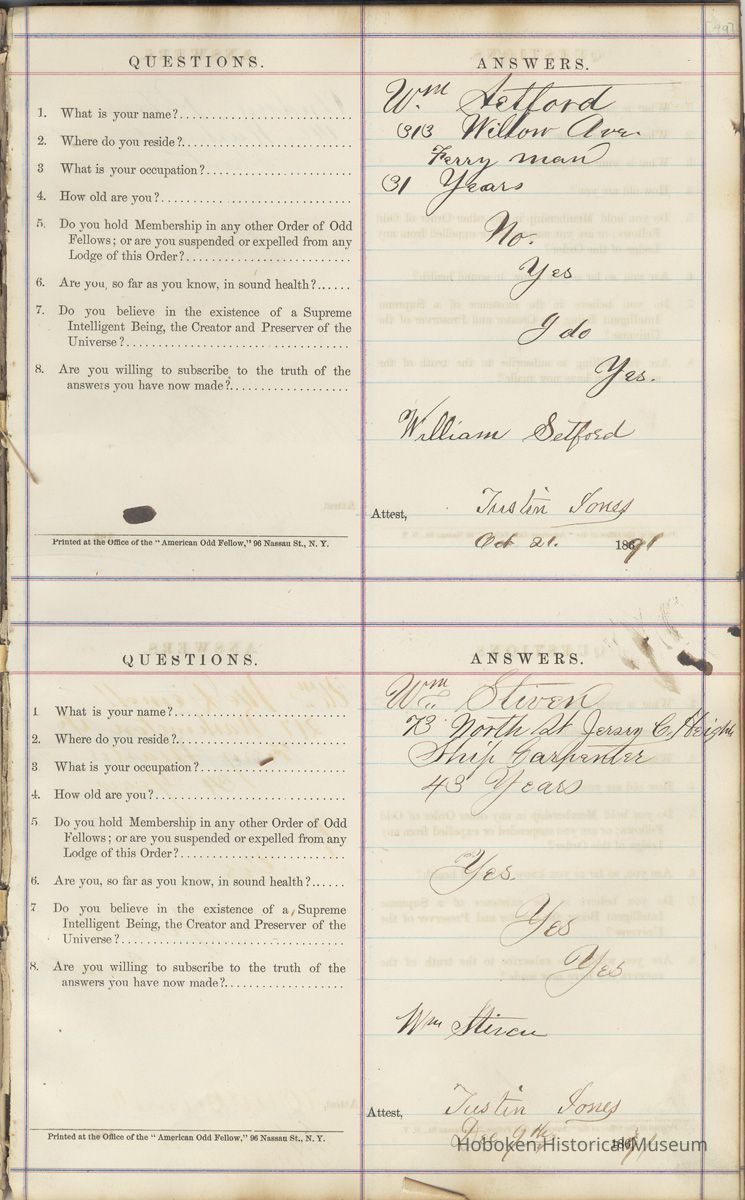 QUESTIONS.
ANSWERS.
1. What is your name?
Wm Setford
2. Where do you reside?
313 Willow Ave.
3 What is your occupation?
Ferry man
4. How old are you?
31 Years
5. Do you hold Membership in any other Order of Odd
Fellows; or are you suspended or expelled from any
Lodge of this Order?
No.
6. Are you, so far as you know, in sound health?
Yes
7. Do you believe in the existence of a Supreme
Intelligent Being, the Creator and Preserver of the
Universe?
I do
8. Are you willing to subscribe to the truth of the
answers you have now made?
Yes.
William Setford
Attest, Justin Jones
Oct 21. 1891
Printed at the Office of the "American Odd Fellow," 96 Nassau St., N. Y.
QUESTIONS.
ANSWERS.
1 What is your name?
Wm Stiven
2. Where do you reside?
73 North St Jersey C. Heights
3 What is your occupation?
Ship Carpenter
4. How old are you?
43 Years
5 Do you hold Membership in any other Order of Odd
Fellows; or are you suspended or expelled from any
Lodge of this Order?
6. Are you, so far as you know, in sound health?
Yes
7 Do you believe in the existence of a Supreme
Intelligent Being, the Creator and Preserver of the
Universe?
Yes
8. Are you willing to subscribe to the truth of the
answers you have now made?
Yes
Wm Stiven
Attest, Justin Jones
Dec 9th
Printed at the Office of the "American Odd Fellow," 96 Nassau St., N. Y.
Hoboken Historical Museum